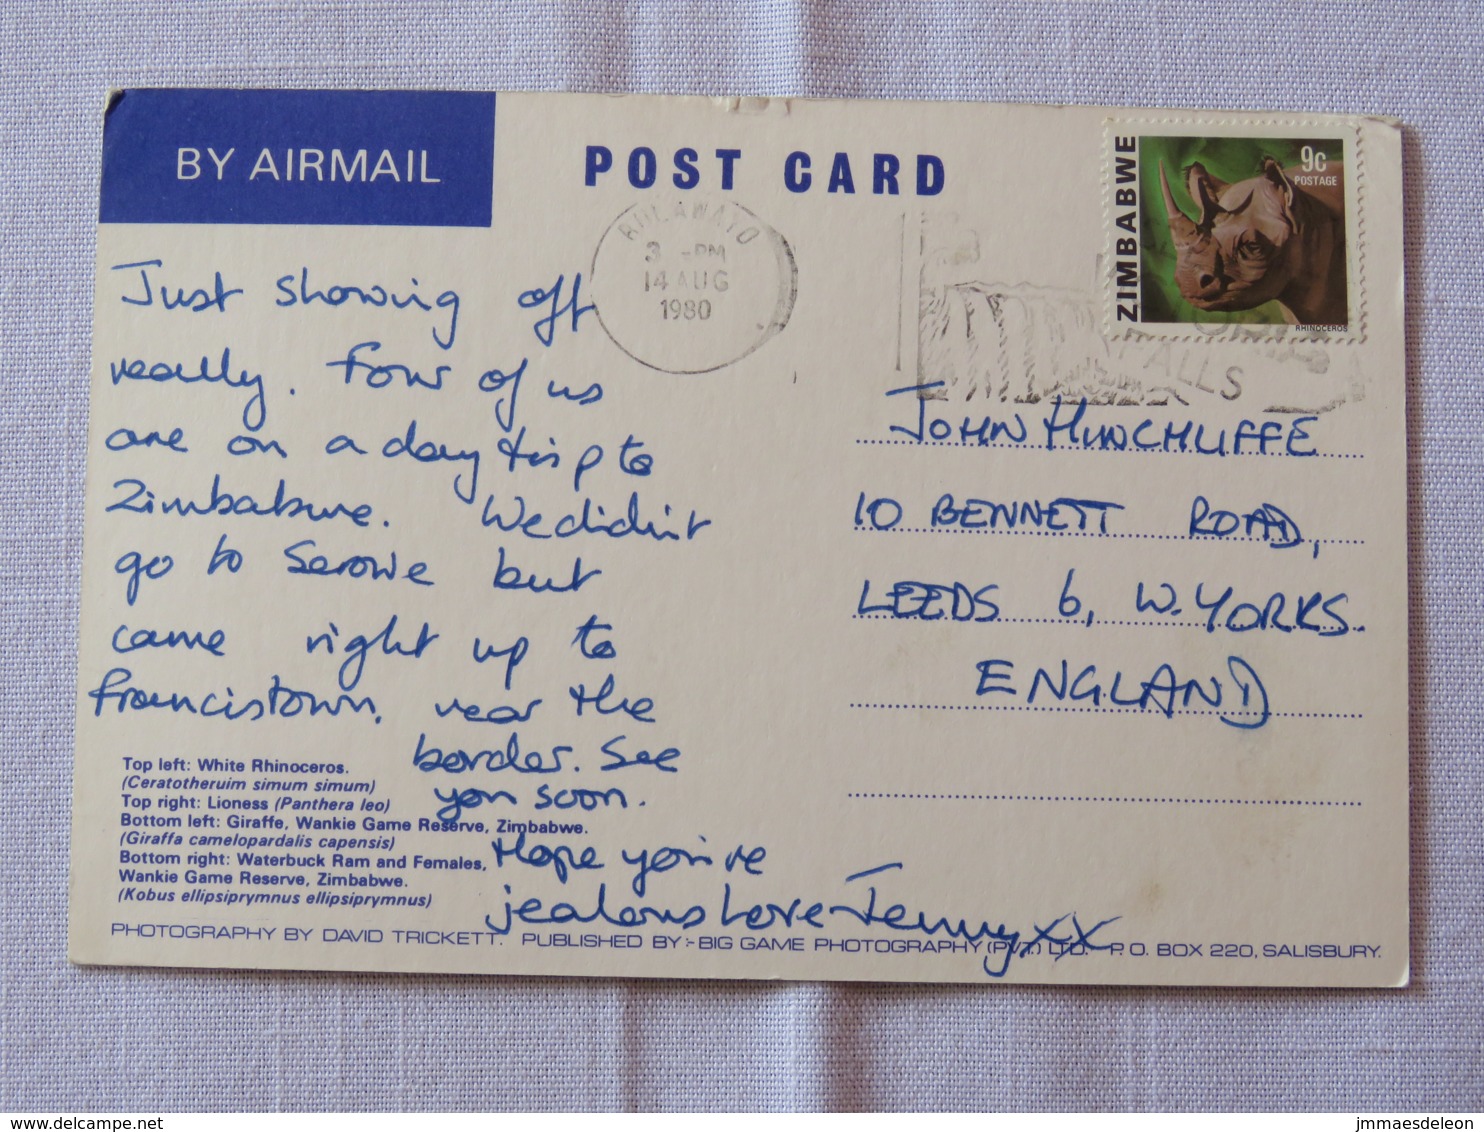 BY AIRMAIL
POST CARD
ZIMBABWE
9c
POSTAGE
RHINOCEROS
BULAWAYO
3 -PM
14 AUG
1980
FALLS
Just showing off
really. Four of us
are on a day trip to
Zimbabwe. We didn't
go to Serowe but
came right up to
Francistown, near the
border. See
you soon.
Hope you're
jealous Love Jenny xx
JOHN HINCHLIFFE
10 BENNETT ROAD,
LEEDS 6, W. YORKS.
ENGLAND
Top left: White Rhinoceros.
(Ceratotheruim simum simum)
Top right: Lioness (Panthera leo)
Bottom left: Giraffe, Wankie Game Reserve, Zimbabwe.
(Giraffa camelopardalis capensis)
Bottom right: Waterbuck Ram and Females,
Wankie Game Reserve, Zimbabwe.
(Kobus ellipsiprymnus ellipsiprymnus)
PHOTOGRAPHY BY DAVID TRICKETT. PUBLISHED BY:-BIG GAME PHOTOGRAPHY (PVT.) LTD. P.O. BOX 220, SALISBURY.
delcampe.net
jmmaesdeleon